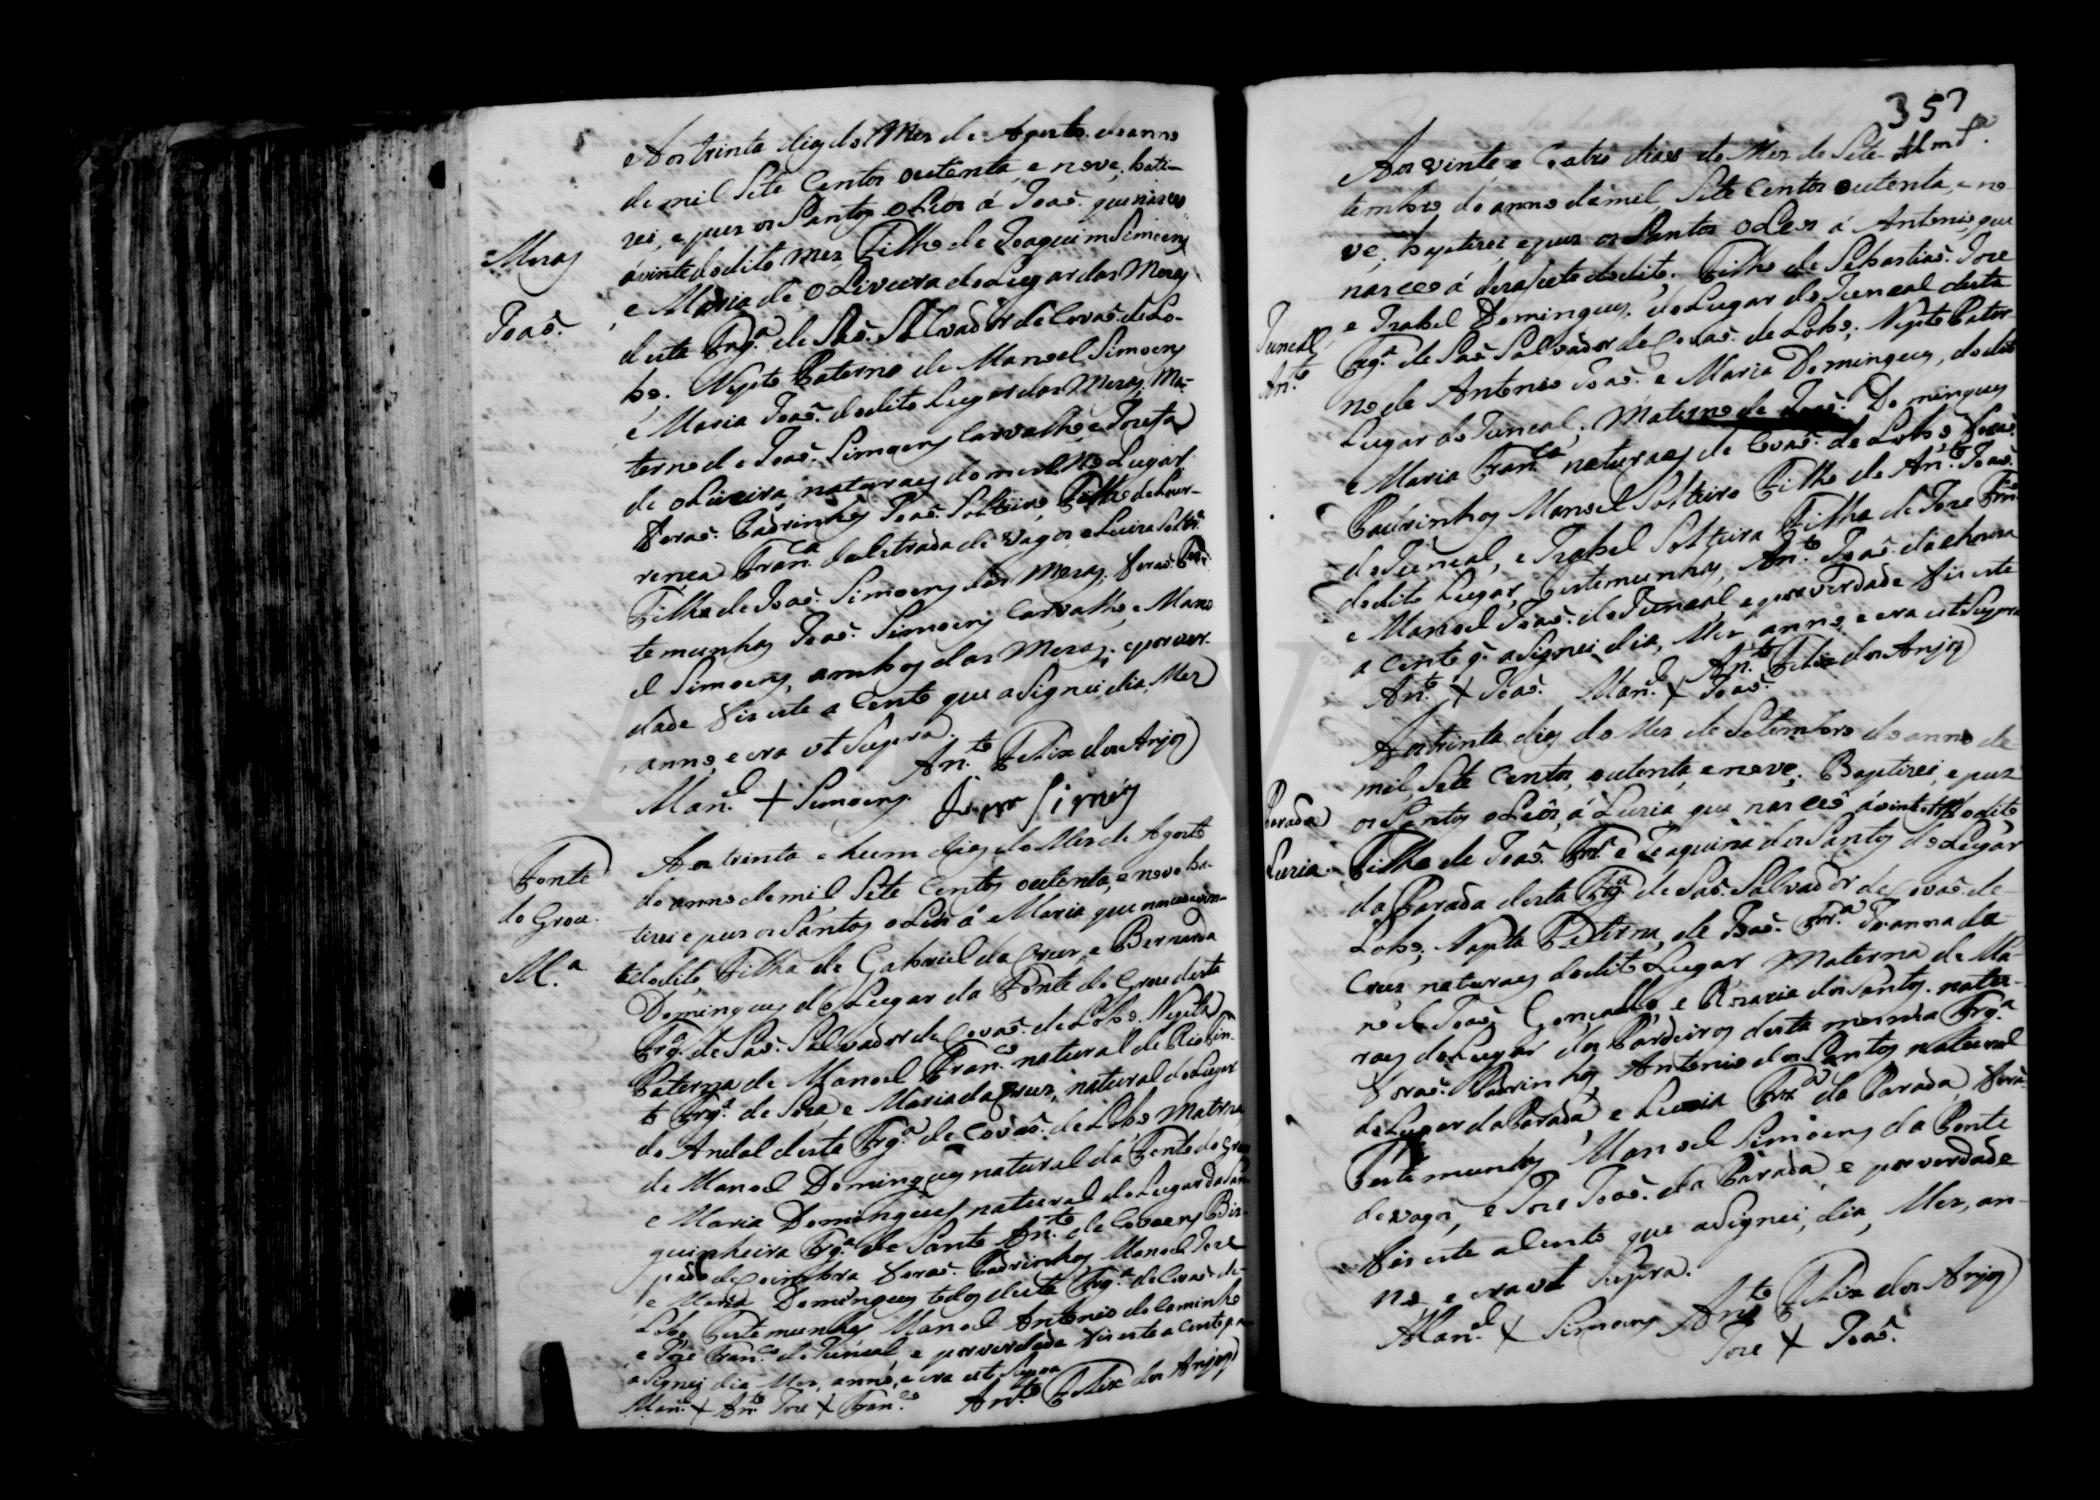 Aos trinta dias do Mes de Agosto do anno
de mil Sete Centos outenta, e nove, bati-
zei, e pus os Santos oLeos á Joaõ. que nasceo
Mezas
á vinte do dito Mes, Filho de Joaquim Simoens
e Maria de oLiveira do Lugar das Mezas
Joaõ.
desta Frg.ª de Saõ. Salvador de Covaõ. de Lo-
bo. Nepto Paterno de Manoel Simoens
e Maria Joaõ. do dito Lugar das Mezas, Ma-
terno de Joaõ. Simoens Carvalho, e Josefa
de oLiveira, naturaes do mesmo Lugar.
Foraõ. Padrinhos Joaõ. Solteiro, Filho de Lour-
renca Fran.ca da Estrada de Vagos e Luiza Solt.ra
Filha de Joaõ. Simoens das Mezas. Foraõ. Tes-
temunhas Joaõ. Simoens Carvalho, e Mano
el Simoens, ambos das Mezas; e por ver-
dade Fis este acento que aSignei dia, Mes
anno, e era ut Supra.
An.to Felix dos Anjos
Man.el + Simoens.
Fonte
do Grou.
Aos trinta e hum dias do Mes de Agosto
do anno de mil Sete Centos outenta, e nove ba-
tizei e pus os Santos oLeos á Maria que nasceo a vin-
M.ª
te do dito, Filha de Gabriel da Crus, e Bernarda
Domingues do Lugar da Fonte do Grou desta
Frg.ª de Saõ. Salvador de Covaõ. de Lobo. Nepta
Paterna de Manoel Fran.co natural de Rio Tin-
to Frg.ª de Soza e Maria da Crus, natural do Lugar
do Andal desta Frg.ª de Covaõ. de Lobo, Materna
de Manoel Domingues natural da Fonte do Grou
e Maria Domingues natural do Lugar da
quinheira Frg.ª de Santo An.to de Covoens Bis-
pado de Coimbra Foraõ. Padrinhos Manoel Joze
e Maria Domingues todos desta Frg.ª de Covaõ. de
Lobo, Testemunhas Manoel Antonio do Caminho
e Joze Fran.co do Junceal, e por verdade Fis este acento q
aSignei dia Mes, anno, e era ut Supra
An.to Felix dos Anjos
Man.el + An.to Joze + Fran.co
357
Aos vinte e Coatro dias do Mes de Sete-
tembro do anno de mil, Sete Centos outenta, e no-
ve, baptizei, e pus os Santos oLeos á Antonio, que
nasceo á dezasete do dito, Filho de Sebastiaõ. Joze
Junceal,
e Izabel Domingues, do Lugar do Junceal desta
An.to
Frg.ª de Saõ Salvador de Covaõ. de Lobo; Nepto Pater-
no de Antonio Joaõ. e Maria Domingues, do dito
Lugar do Junceal; Materno de Joaõ. Domingues
e Maria Fran.ca naturaes de Covaõ. de Lobo, Foraõ.
Padrinhos Manoel Solteiro Filho de An.to Joaõ.
do Junceal, e Izabel Solteira Filha de Joze
do dito Lugar, Testemunhas, An.to Joaõ. da
e Manoel Joaõ. do Junceal e por verdade Fis este
acento q. aSignei dia, Mes anno, e era ut Supra
An.to Felix dos Anjos
An.to + Joaõ. Man.el + Joaõ.
Aos trinta dias do Mes de Setembro do anno de
mil, Sete Centos, outenta, e nove, Baptizei, e pus
Parada
os Santos oLeos, á Luzia, que nasceo á vinte do dito
Luzia.
Filha de Joaõ. e Joaquina dos Santos do Lugar
da Parada desta Frg.ª de Saõ. Salvador de Covaõ. de
Lobo, Nepta Paterna, de Joaõ. Joanna da
Crus naturaes do dito Lugar Materna de Ma-
noel Joaõ Goncallo, e Rozaria dos Santos. natu-
raes do Lugar dos Pardeiros desta mesma Frg.ª
Foraõ. Padrinhos, Antonio dos Santos natural
do Lugar da Parada, e Luzia da Parada, Foraõ.
Testemunhas Manoel Simoens da Ponte
de vagos, e Joze Joaõ. da Parada, e por verdade
Fis este acento que aSignei, dia, Mes, an-
no, e era ut Supra.
An.to Felix dos Anjos
Man.el + Simoens
Joze + Joaõ.